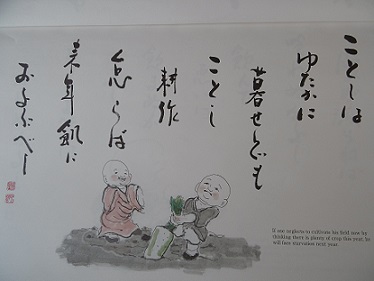 ことしは
ゆたかに
暮せども
ことし
耕作
怠らば
来年飢に
およぶべし
If one neglects to cultivate his field now by
thinking there is plenty of crop this year, he
will face starvation next year.